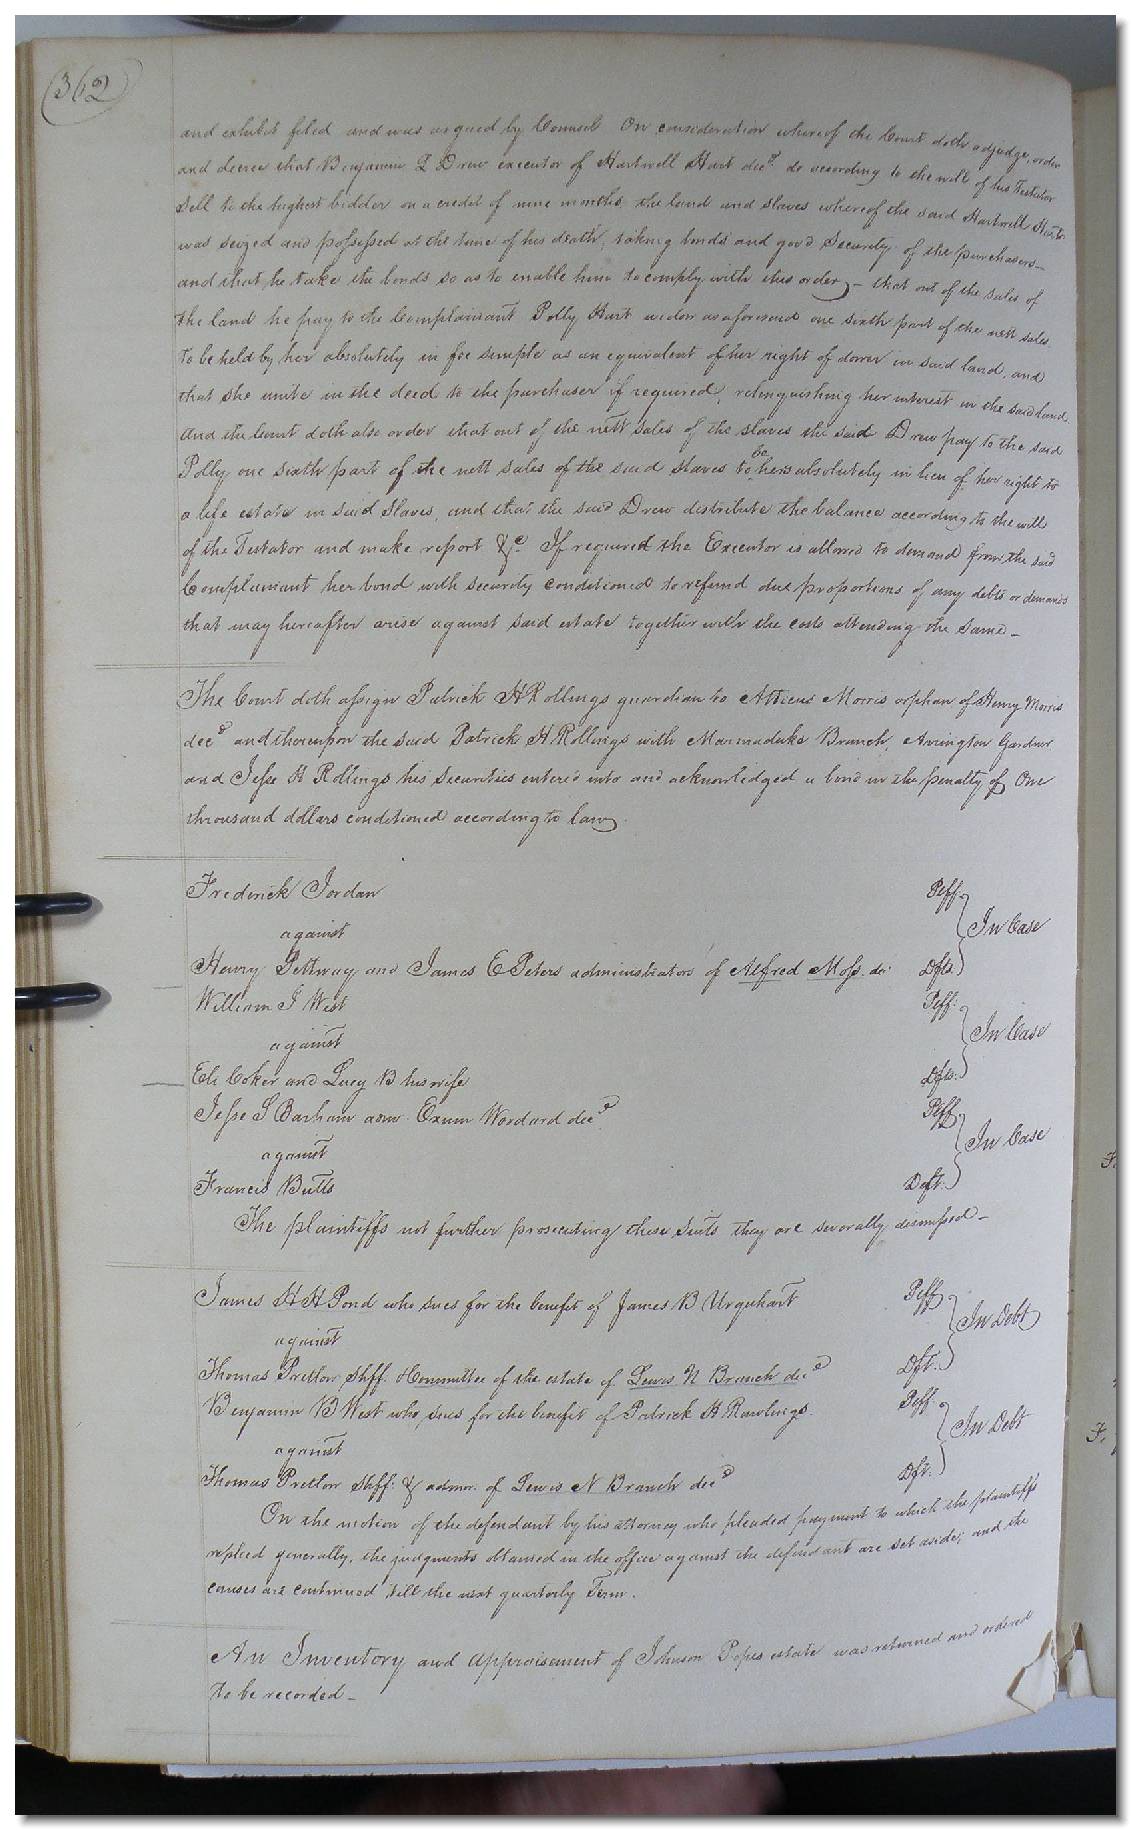 362
and exhibit filed and was argued by Counsel On consideration whereof the Court doth adjudge, order
and decree that Benjamin Q Drew executor of Hartwell Hart decd. do according to the will of his Testator
Sell to the highest bidder on a credit of nine months the land and slaves whereof the said Hartwell Hart
was seized and possessed at the time of his death, taking bonds and good Security of the purchasers—
and that he take the bonds so as to enable him to comply with this order— that out of the sales of
the land he pay to the Complainant Polly Hart widow as aforesaid one sixth part of the nett sales
to be held by her absolutely in fee simple as an equivalent of her right of dower in said land, and
that she unite in the deed to the purchaser if required, relinquishing her interest in the said land.
And the Court doth also order that out of the nett sales of the slaves the said Drew pay to the said
Polly one sixth part of the nett sales of the said slaves to be hers absolutely in lieu of her right to
a life estate in said Slaves, and that the said Drew distribute the balance according to the will
of the Testator and make report &c. If required the Executor is allowed to demand from the said
Complainant her bond with security conditioned to refund due proportions of any debts or demands
that may hereafter arise against said estate together with the costs attending the same—
The Court doth assign Patrick H Rollings guardian to Atticus Morris orphan of Henry Morris
decd and thereupon the said Patrick H Rollings with Marmaduke Branch, Arrington Gardner
and Jesse H Rollings his Securities entered into and acknowledged a bond in the penalty of One
thousand dollars conditioned according to law
Frederick Jordan Plff.
against In Case
Henry Pettway and James E Peters administrators of Alfred Moss dec Dfts.
William J West Plff.
against In Case
Eli Coker and Lucy B his wife Dfts.
Jesse S Barham adm. Exum Woodard decd Plff.
against In Case
Francis Butts Deft.
The plaintiffs not further prosecuting these Suits they are severally dismissed—
James H H Pond who sues for the benefit of James B Urquhart Plff.
against In Debt
Thomas Pretlow Shff. & Committee of the estate of Lewis N Branch decd Dft.
Benjamin B West who sues for the benefit of Patrick H Rawlings Plff.
against In Debt
Thomas Pretlow Shff. & admor. of Lewis N Branch decd Dft.
On the motion of the defendant by his attorney who pleaded payment to which the plaintiffs
replied generally, the judgments obtained in the office against the defendant are set aside; and the
causes are continued till the next quarterly Term.
An Inventory and appraisement of Johnson Popes estate was returned and ordered
to be recorded—